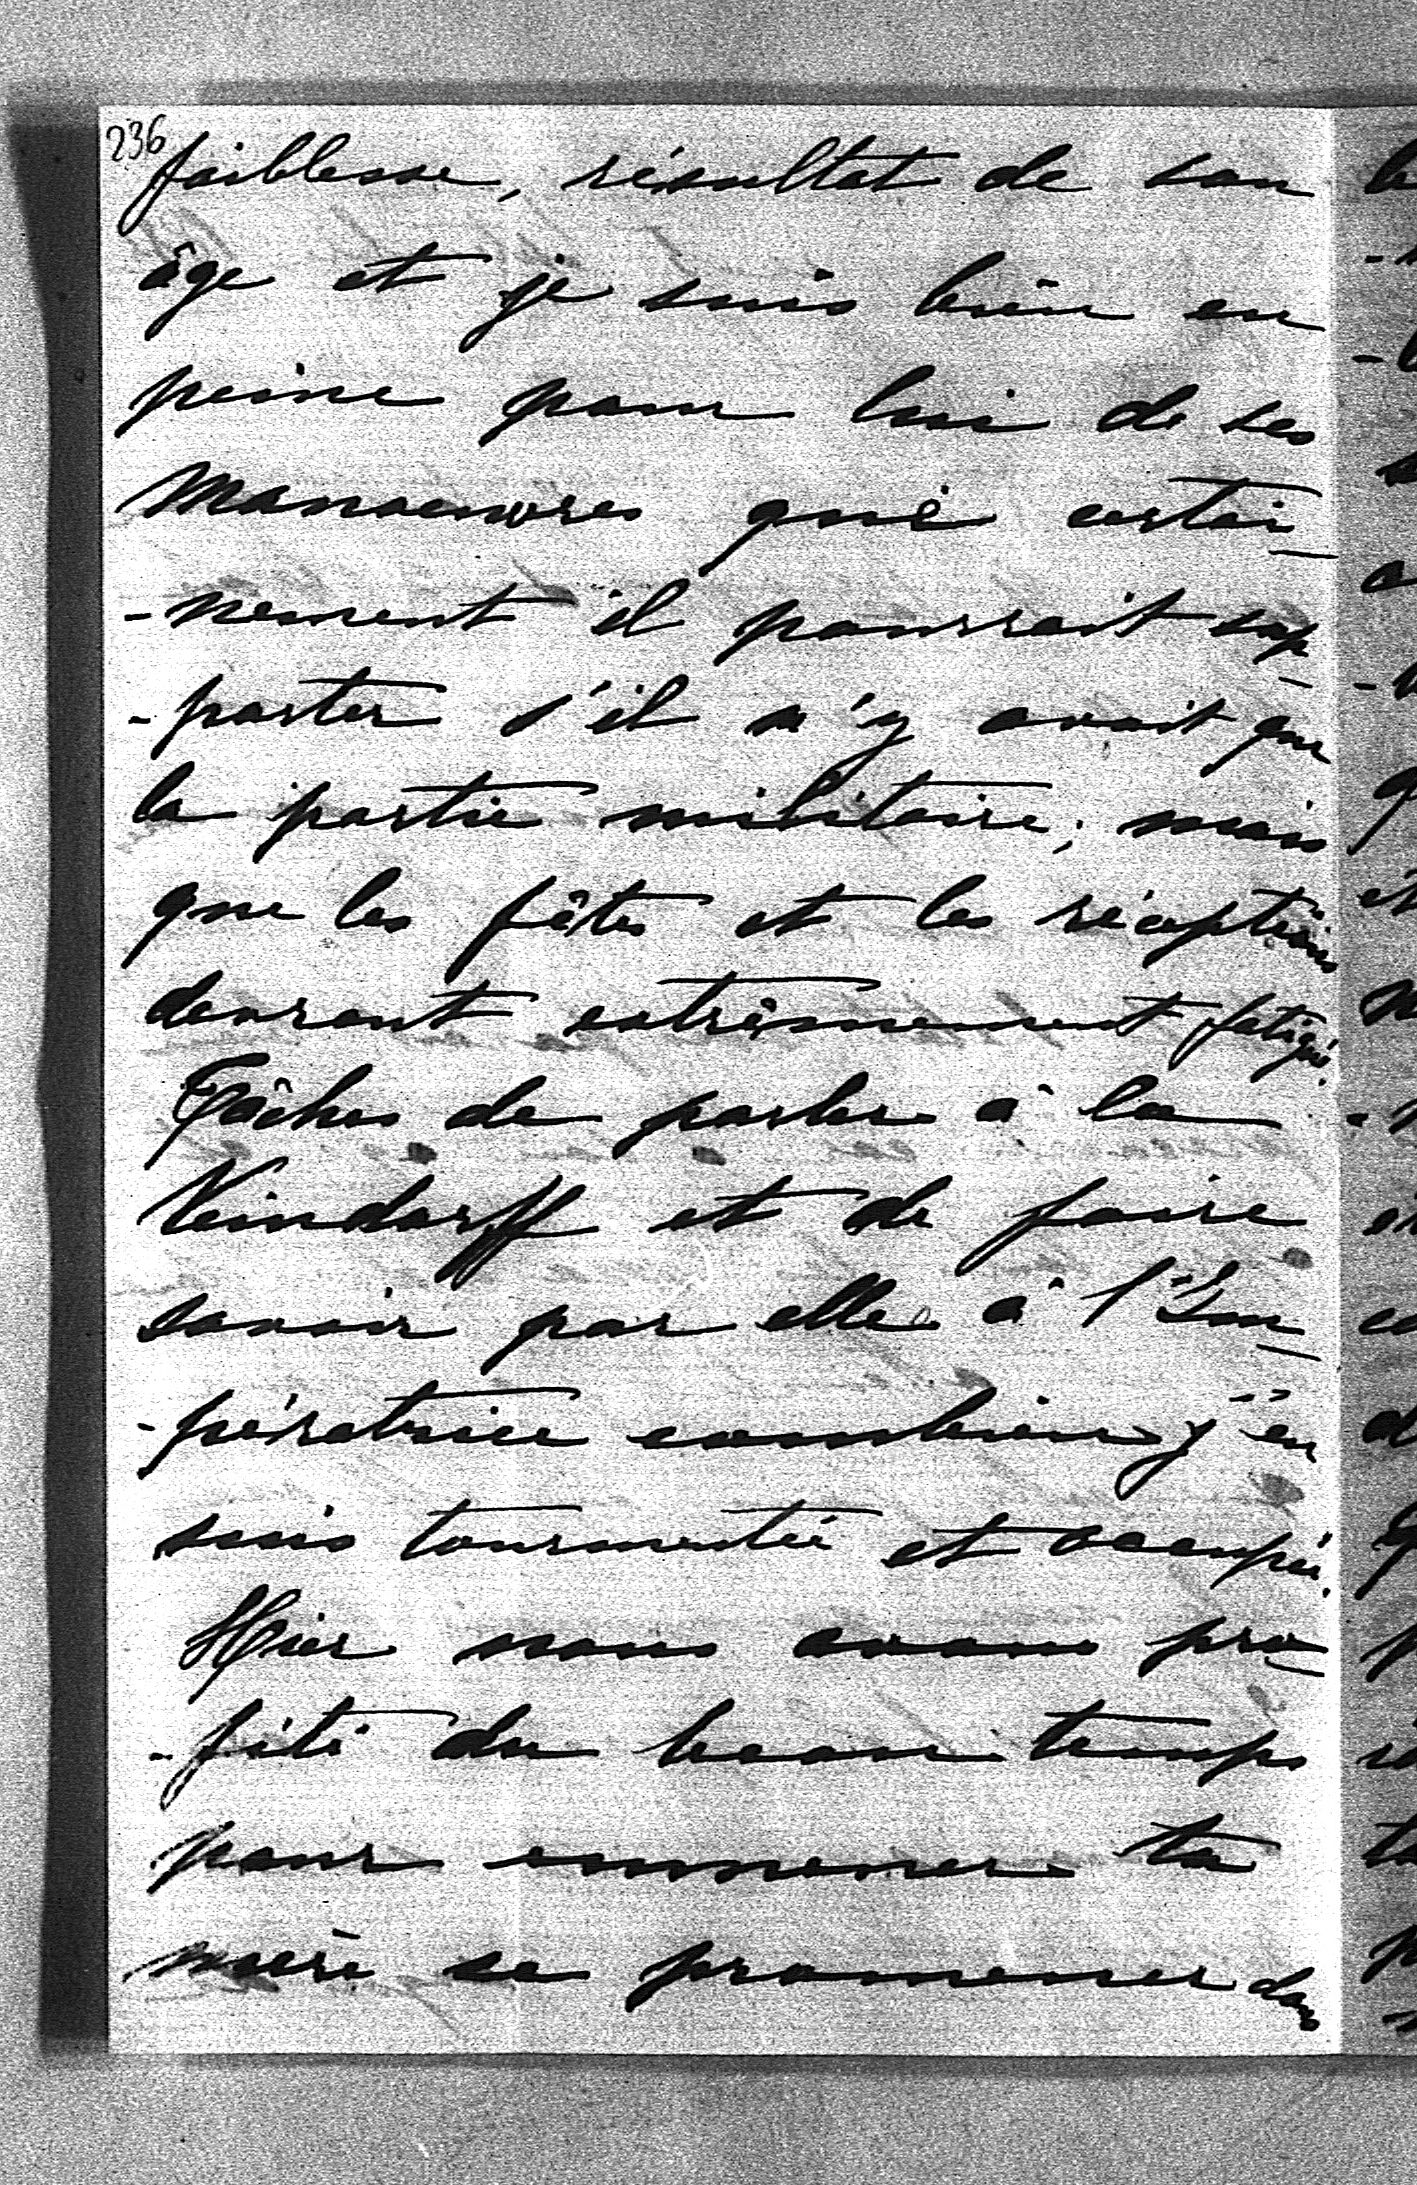 236
faiblesse, résultat de son
âge et je suis bien en
peine pour lui de ses
manoeuvres que certai-
-nement il pourrait sup-
-porter s'il n'y avait que
la partie militaire; mais
que les fêtes et les réceptions
devront extrêmement fatigué.
Tâches de parler à la
Veindorff et de faire
savoir par elle à l'Im-
-pératrice combien j'en
suis tourmentée et occupée.
Hier nous avons pro-
-fité du beau temps
pour emmener ta
mère se promener dans